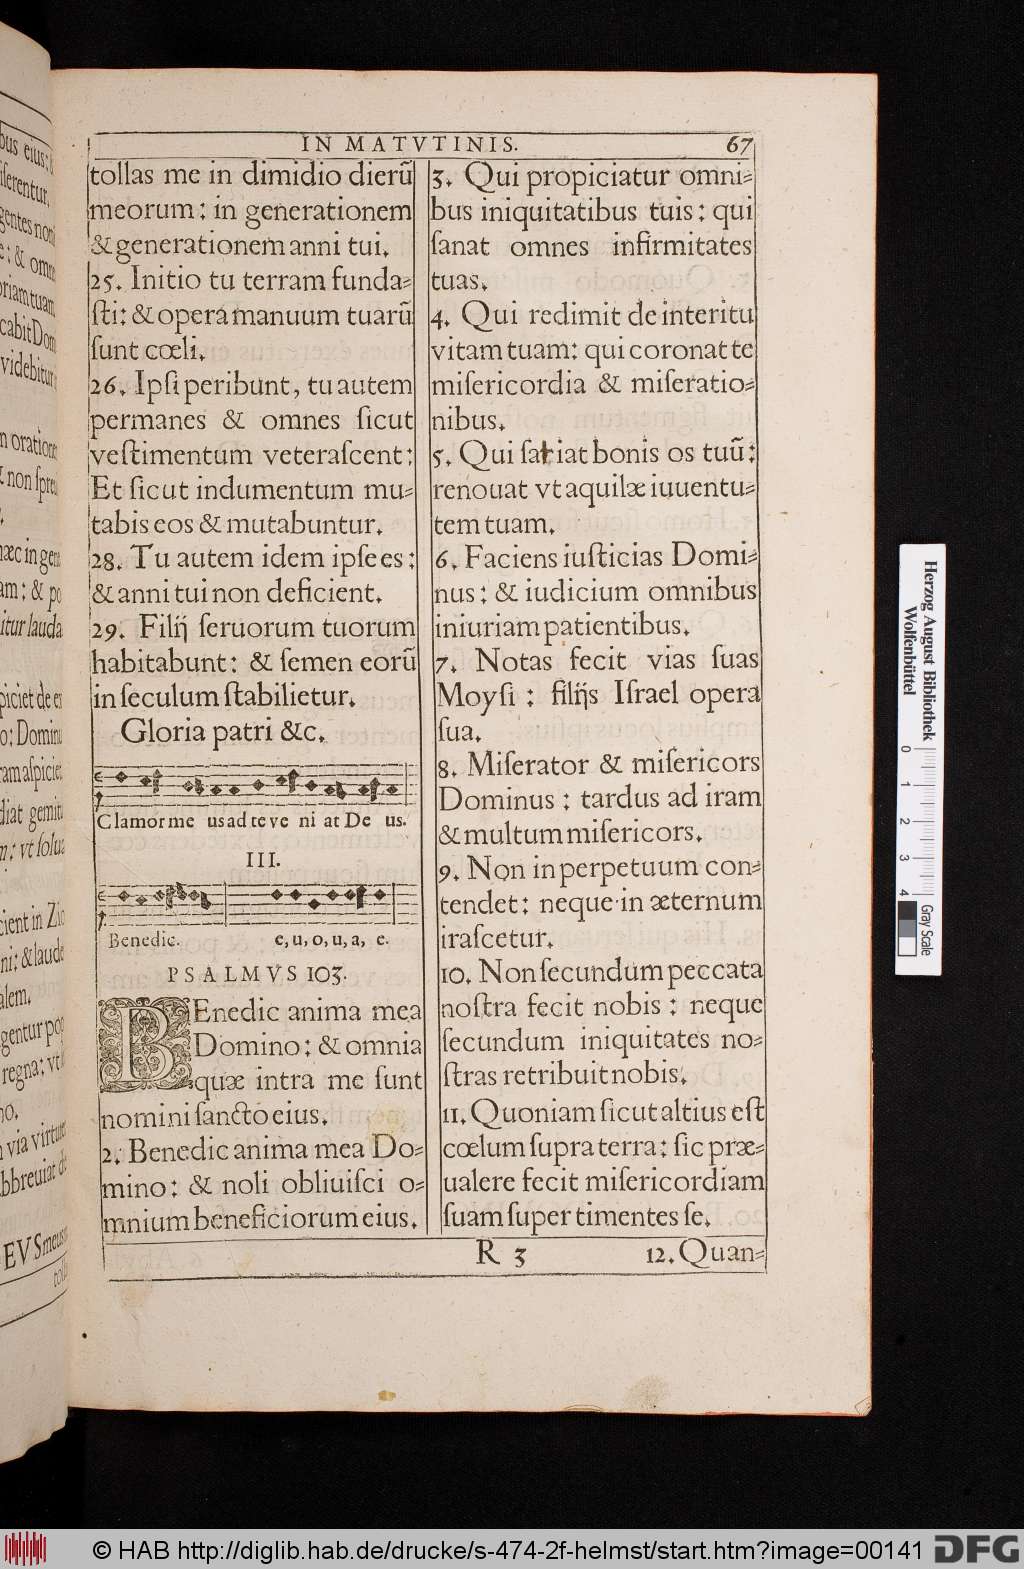 IN MATVTINIS. 67
tollas me in dimidio dierū
meorum: in generationem
& generationem anni tui.
25. Initio tu terram funda=
ſti: & opera manuum tuarū
ſunt cœli.
26. Ipſi peribunt, tu autem
permanes & omnes ſicut
veſtimentum veteraſcent:
Et ſicut indumentum mu=
tabis eos & mutabuntur.
28. Tu autem idem ipſe es:
& anni tui non deficient.
29. Filij ſeruorum tuorum
habitabunt: & ſemen eorū
in ſeculum ſtabilietur.
Gloria patri &c.
Clamor me us ad te ve ni at De us.
III.
Benedic. e, u, o, u, a, e.
PSALMVS 103.
BEnedic anima mea
Domino: & omnia
quæ intra me ſunt
nomini ſancto eius.
2. Benedic anima mea Do=
mino: & noli obliuiſci o=
mnium beneficiorum eius.
3. Qui propiciatur omni=
bus iniquitatibus tuis: qui
ſanat omnes infirmitates
tuas.
4. Qui redimit de interitu
vitam tuam: qui coronat te
miſericordia & miſeratio=
nibus.
5. Qui ſatiat bonis os tuū:
renouat vt aquilæ iuuentu=
tem tuam.
6. Faciens iuſticias Domi=
nus: & iudicium omnibus
iniuriam patientibus.
7. Notas fecit vias ſuas
Moyſi: filijs Iſrael opera
ſua.
8. Miſerator & miſericors
Dominus: tardus ad iram
& multum miſericors.
9. Non in perpetuum con=
tendet: neque in æternum
iraſcetur.
10. Non ſecundum peccata
noſtra fecit nobis: neque
ſecundum iniquitates no=
ſtras retribuit nobis.
11. Quoniam ſicut altius eſt
cœlum ſupra terra: ſic præ=
ualere fecit miſericordiam
ſuam ſuper timentes ſe.
R 3 12. Quan=
Herzog August Bibliothek
Wolfenbüttel
0 1 2 3 4 Gray Scale
© HAB http://diglib.hab.de/drucke/s-474-2f-helmst/start.htm?image=00141 DFG